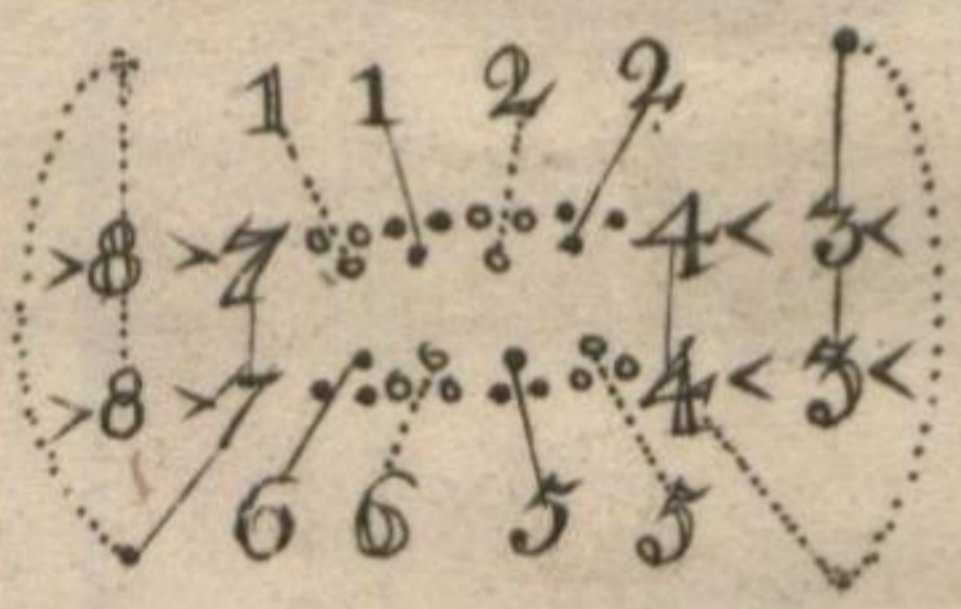 1 1 2 2
>8 >7 4< 3<
>8 >7 4< 3<
6 6 5 5